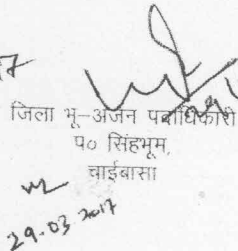 जिला भू-अर्जन पदाधिकारी
प० सिंहभूम,
चाईबासा
29.03.2017